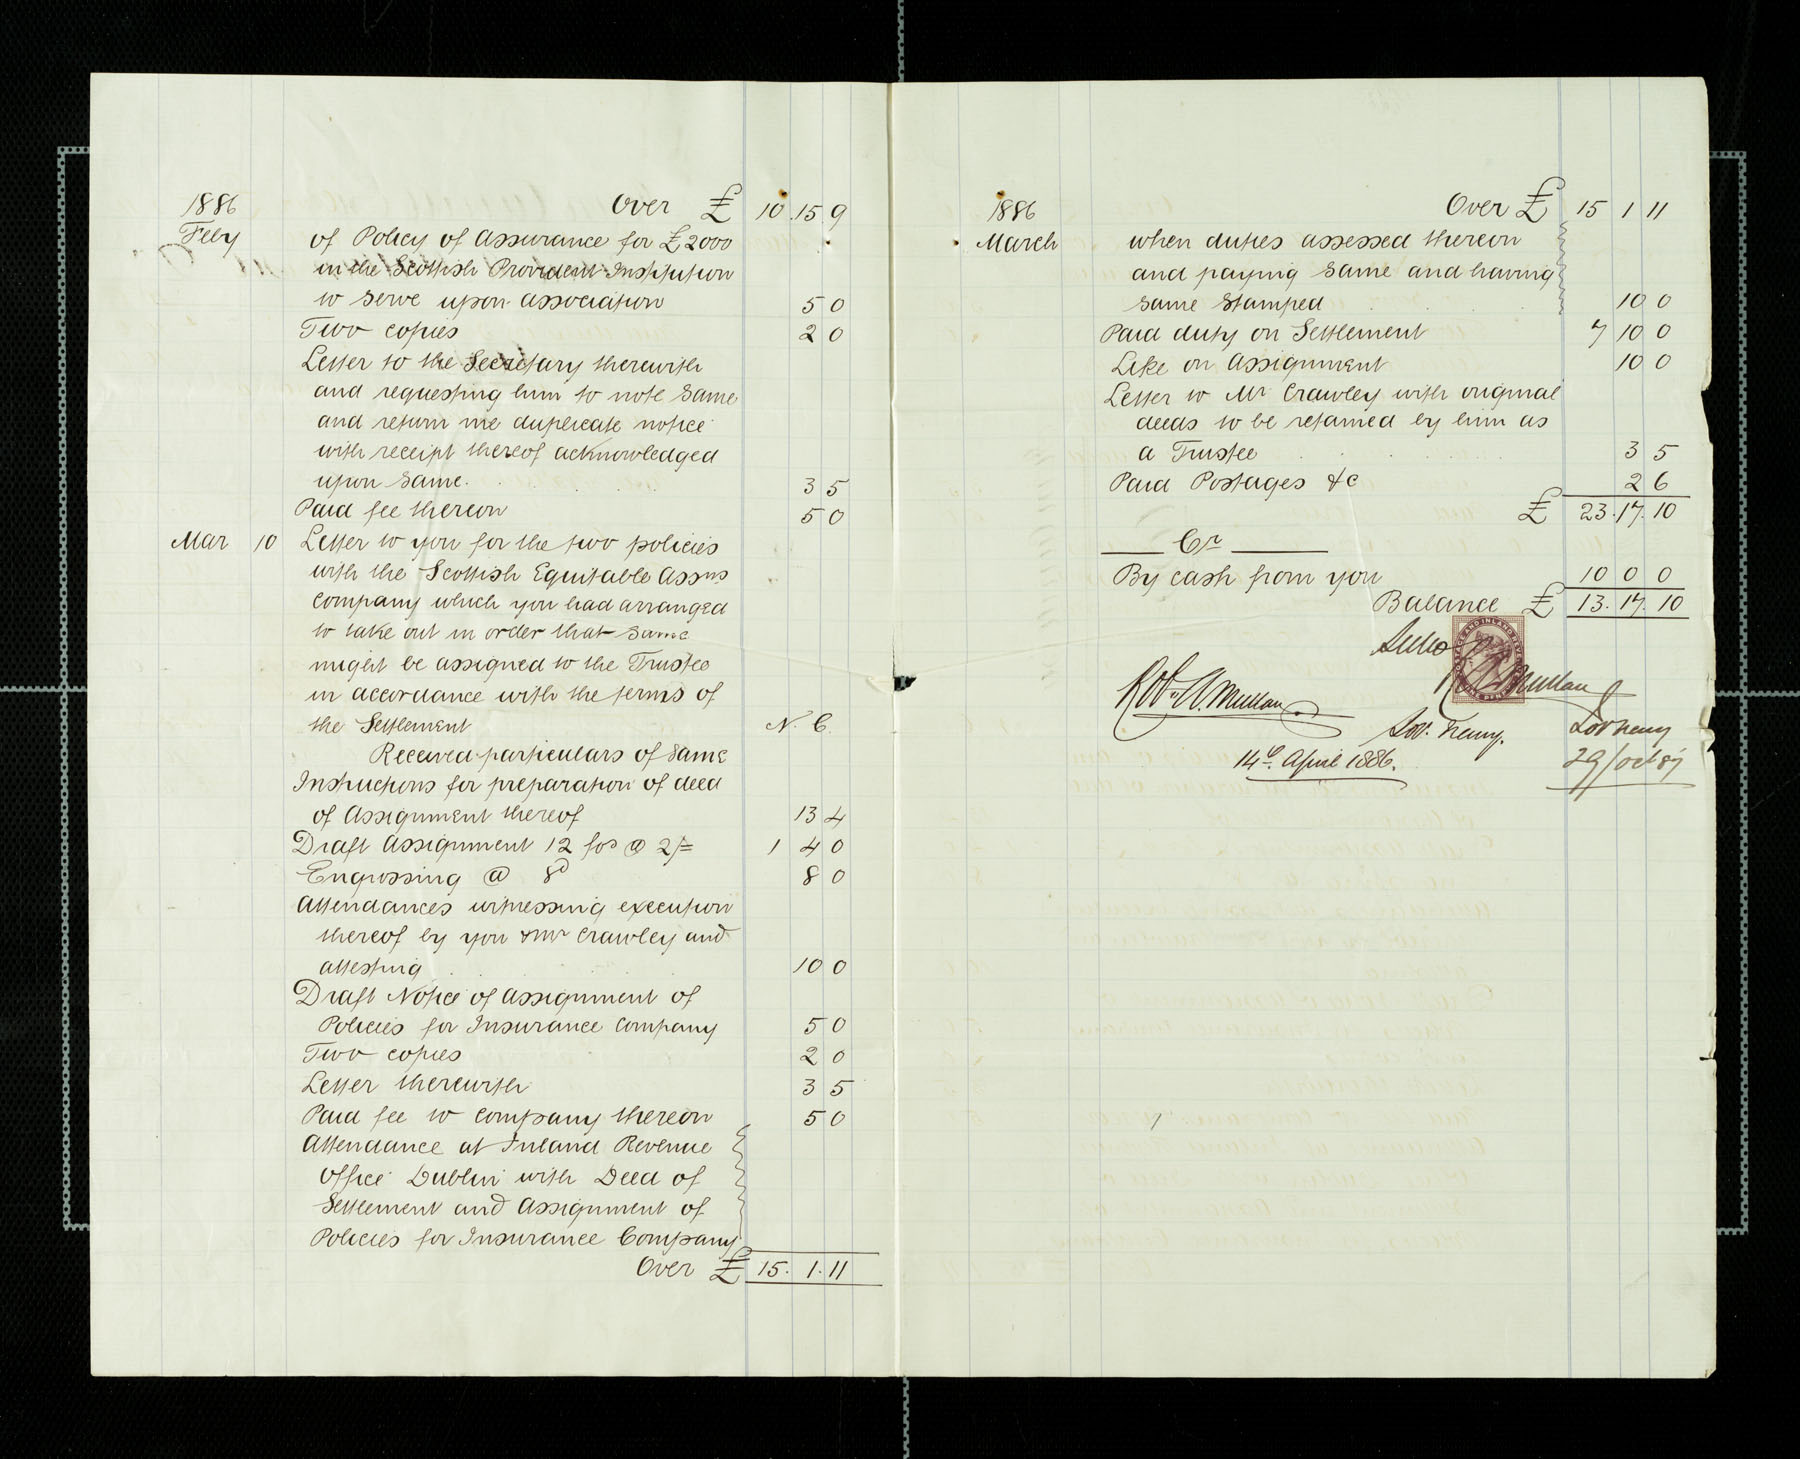 1886 Over £ 10.15 9
Feby of Policy of Assurance for £2000
in the Scottish Provident Institution
to serve upon association 5 0
Two copies 2 0
Letter to the Secretary therewith
and requesting him to note same
and return me duplicate notice
with receipt thereof acknowledged
upon same. 3 5
Paid fee thereon 5 0
Mar 10 Letter to you for the two policies
with the Scottish Equitable Assnce
Company which you had arranged
to take out in order that same
might be assigned to the Trustee
in accordance with the terms of
the Settlement N. C.
Received particulars of same
Instructions for preparation of deed
of Assignment thereof 13 4
Draft Assignment 12 fos @ 2/= 1 4 0
Engrossing @ 8d 8 0
Attendances witnessing execution
thereof by you & Mr Crawley and
attesting 10 0
Draft Notice of Assignment of
Policies for Insurance Company 5 0
Two copies 2 0
Letter therewith 3 5
Paid fee to Company thereon 5 0
Attendance at Inland Revenue
Office Dublin with Deed of
Settlement and Assignment of
Policies for Insurance Company
Over £ 15. 1. 11
1886 Over £ 15 1 11
March when duties assessed thereon
and paying same and having
same stamped 10 0
Paid duty on Settlement 7 10 0
Like on Assignment 10 0
Letter to Mr Crawley with original
deeds to be retained by him as
a Trustee 3 5
Paid Postages &c 2 6
£ 23.17.10
Cr
By cash from you 10 0 0
Balance £ 13.17.10
Mullan
Robt A. Mullan
Solr. Newry.
14th April 1886.
29/Oct 87